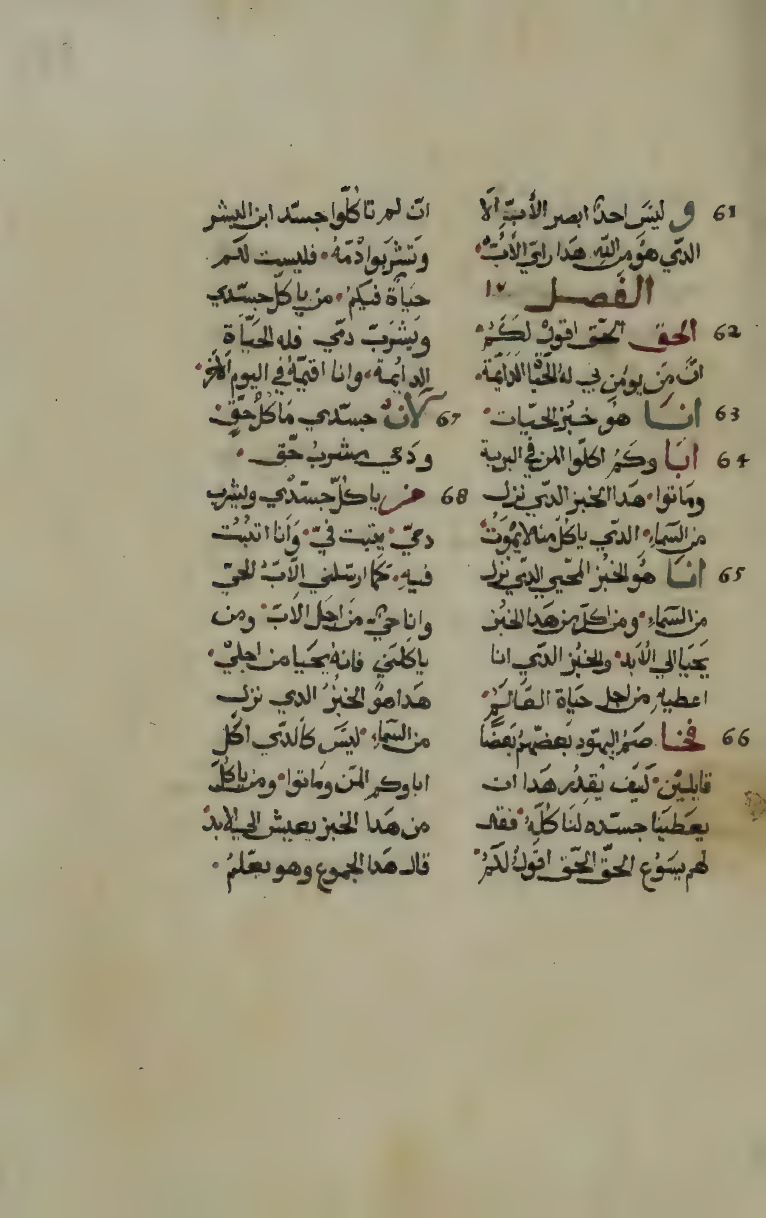 61 و ليس احدٌ ابصر الأبّ الّا
الدّي هوَ من اللّه هَدا راي الأبُّ
الفَصل ١٧
62 الحق الحّق اقولُ لكَمُ
انّ مَن يومُن بي له الحَّياة الدَايمّة
63 انَا هوُ خبزُ الحيّات
64 ابَا وكمُ اكلّوا المن في البرية
ومَاتوا هَدا الخبز الدّي نزل
من السّماء الدّي ياكلّ منه لا يموُتُ
65 انَا هُو الخبُز المحّيي الدّي نزل
من السّماءِ ومن اكلّ من هَدا الخبُز
يَحيَا الي الأبد والخبُز الدّي انا
اعطيهِ من اجل حيَاة العَالمُ
66 فخَا صَمُ اليهوُد بَعضّهمُ بَعضًا
قايليّن كيَف يَقدُر هَدا ان
يعَطينَا جسّده لنَا كلَهُ فقال
لهم يسَوُع الحّق الحّق اقولُ لكَمُ
انّ لم تاكُلّوا جسّد ابن البشر
وتَشرَبوا دْمّهُ فليست لكَم
حيَاةُ فيكمُ من ياكلّ جسّدي
ويشرَبّ دمّي فله الحَيّاَة
الدايُمة وانا اقيمّهُ في اليوم الاَخر
67 لانُ جسّدي مَاكلُ حَقٍّ
ودَمي مشربُ حّق
68 من ياكلّ جسّدْي ويشرب
دميّ يتبت فيّ وَأنا اتبُت
فيهِ كمَا ارسّلني الأبّ الحيّ
وانا حيٌ من اجَل الأبّ ومن
ياكلنَي فانهُ يحَيا من اجليْ
هَدا هوُ الخبزُ الدي نزل
من السّماءِ ليسَ كالدّي اكلّ
اباوكم المّن ومَاتوا ومن ياكلّ
من هَدا الخبز يعيش الي الابد
قال هَدا الجموع وهو يعّلمُ